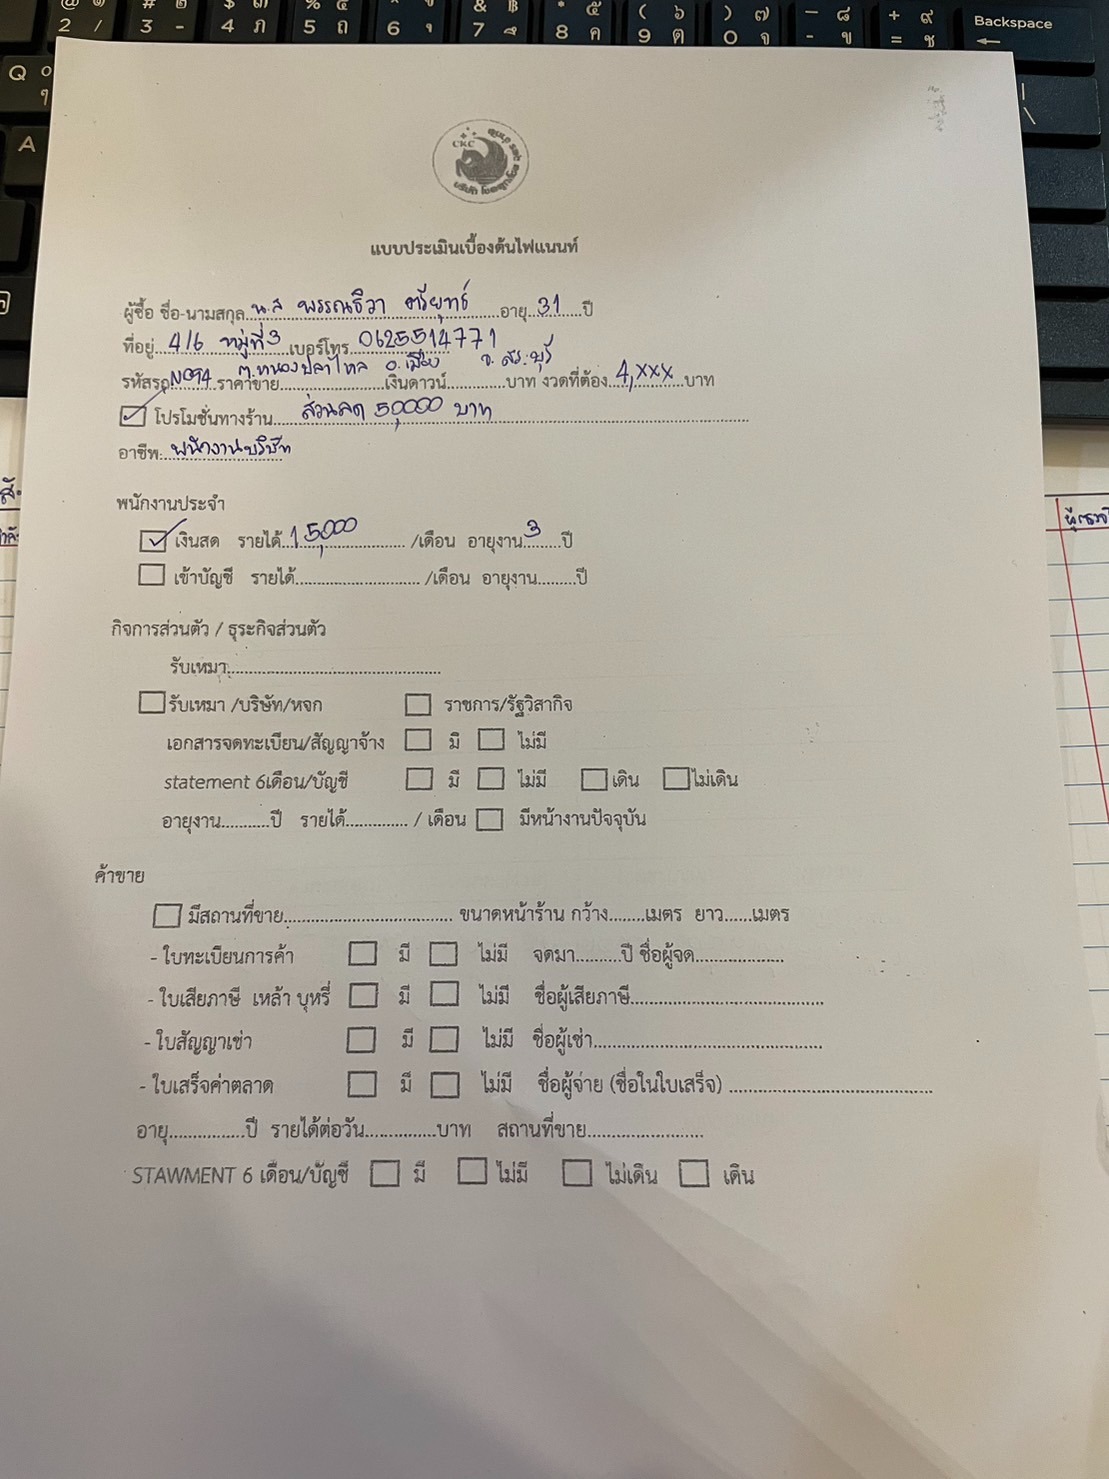 CKC
แบบประเมินเบื้องต้นไฟแนนท์
ผู้ซื้อ ชื่อ-นามสกุล น.ส พรรณธิวา ตรียุทธ์ อายุ 31 ปี
ที่อยู่ 4/6 หมู่ที่3 เบอร์โทร 0625514771
ต.หนองปลาไหล อ.เมือง จ.สระบุรี
รหัสรถ N094 ราคาขาย เงินดาวน์ บาท งวดที่ต้อง 4,xxx บาท
โปรโมชั่นทางร้าน ส่วนลด 50,000 บาท
อาชีพ: พนักงานบริษัท
พนักงานประจำ
เงินสด รายได้ 15,000 /เดือน อายุงาน 3 ปี
เข้าบัญชี รายได้ /เดือน อายุงาน ปี
กิจการส่วนตัว / ธุระกิจส่วนตัว
รับเหมา
รับเหมา /บริษัท/หจก ราชการ/รัฐวิสากิจ
เอกสารจดทะเบียน/สัญญาจ้าง มี ไม่มี
statement 6เดือน/บัญชี มี ไม่มี เดิน ไม่เดิน
อายุงาน ปี รายได้ / เดือน มีหน้างานปัจจุบัน
ค้าขาย
มีสถานที่ขาย ขนาดหน้าร้าน กว้าง เมตร ยาว เมตร
- ใบทะเบียนการค้า มี ไม่มี จดมา ปี ชื่อผู้จด
- ใบเสียภาษี เหล้า บุหรี่ มี ไม่มี ชื่อผู้เสียภาษี
- ใบสัญญาเช่า มี ไม่มี ชื่อผู้เช่า
- ใบเสร็จค่าตลาด มี ไม่มี ชื่อผู้จ่าย (ชื่อในใบเสร็จ)
อายุ ปี รายได้ต่อวัน บาท สถานที่ขาย
STAWMENT 6 เดือน/บัญชี มี ไม่มี ไม่เดิน เดิน
Backspace